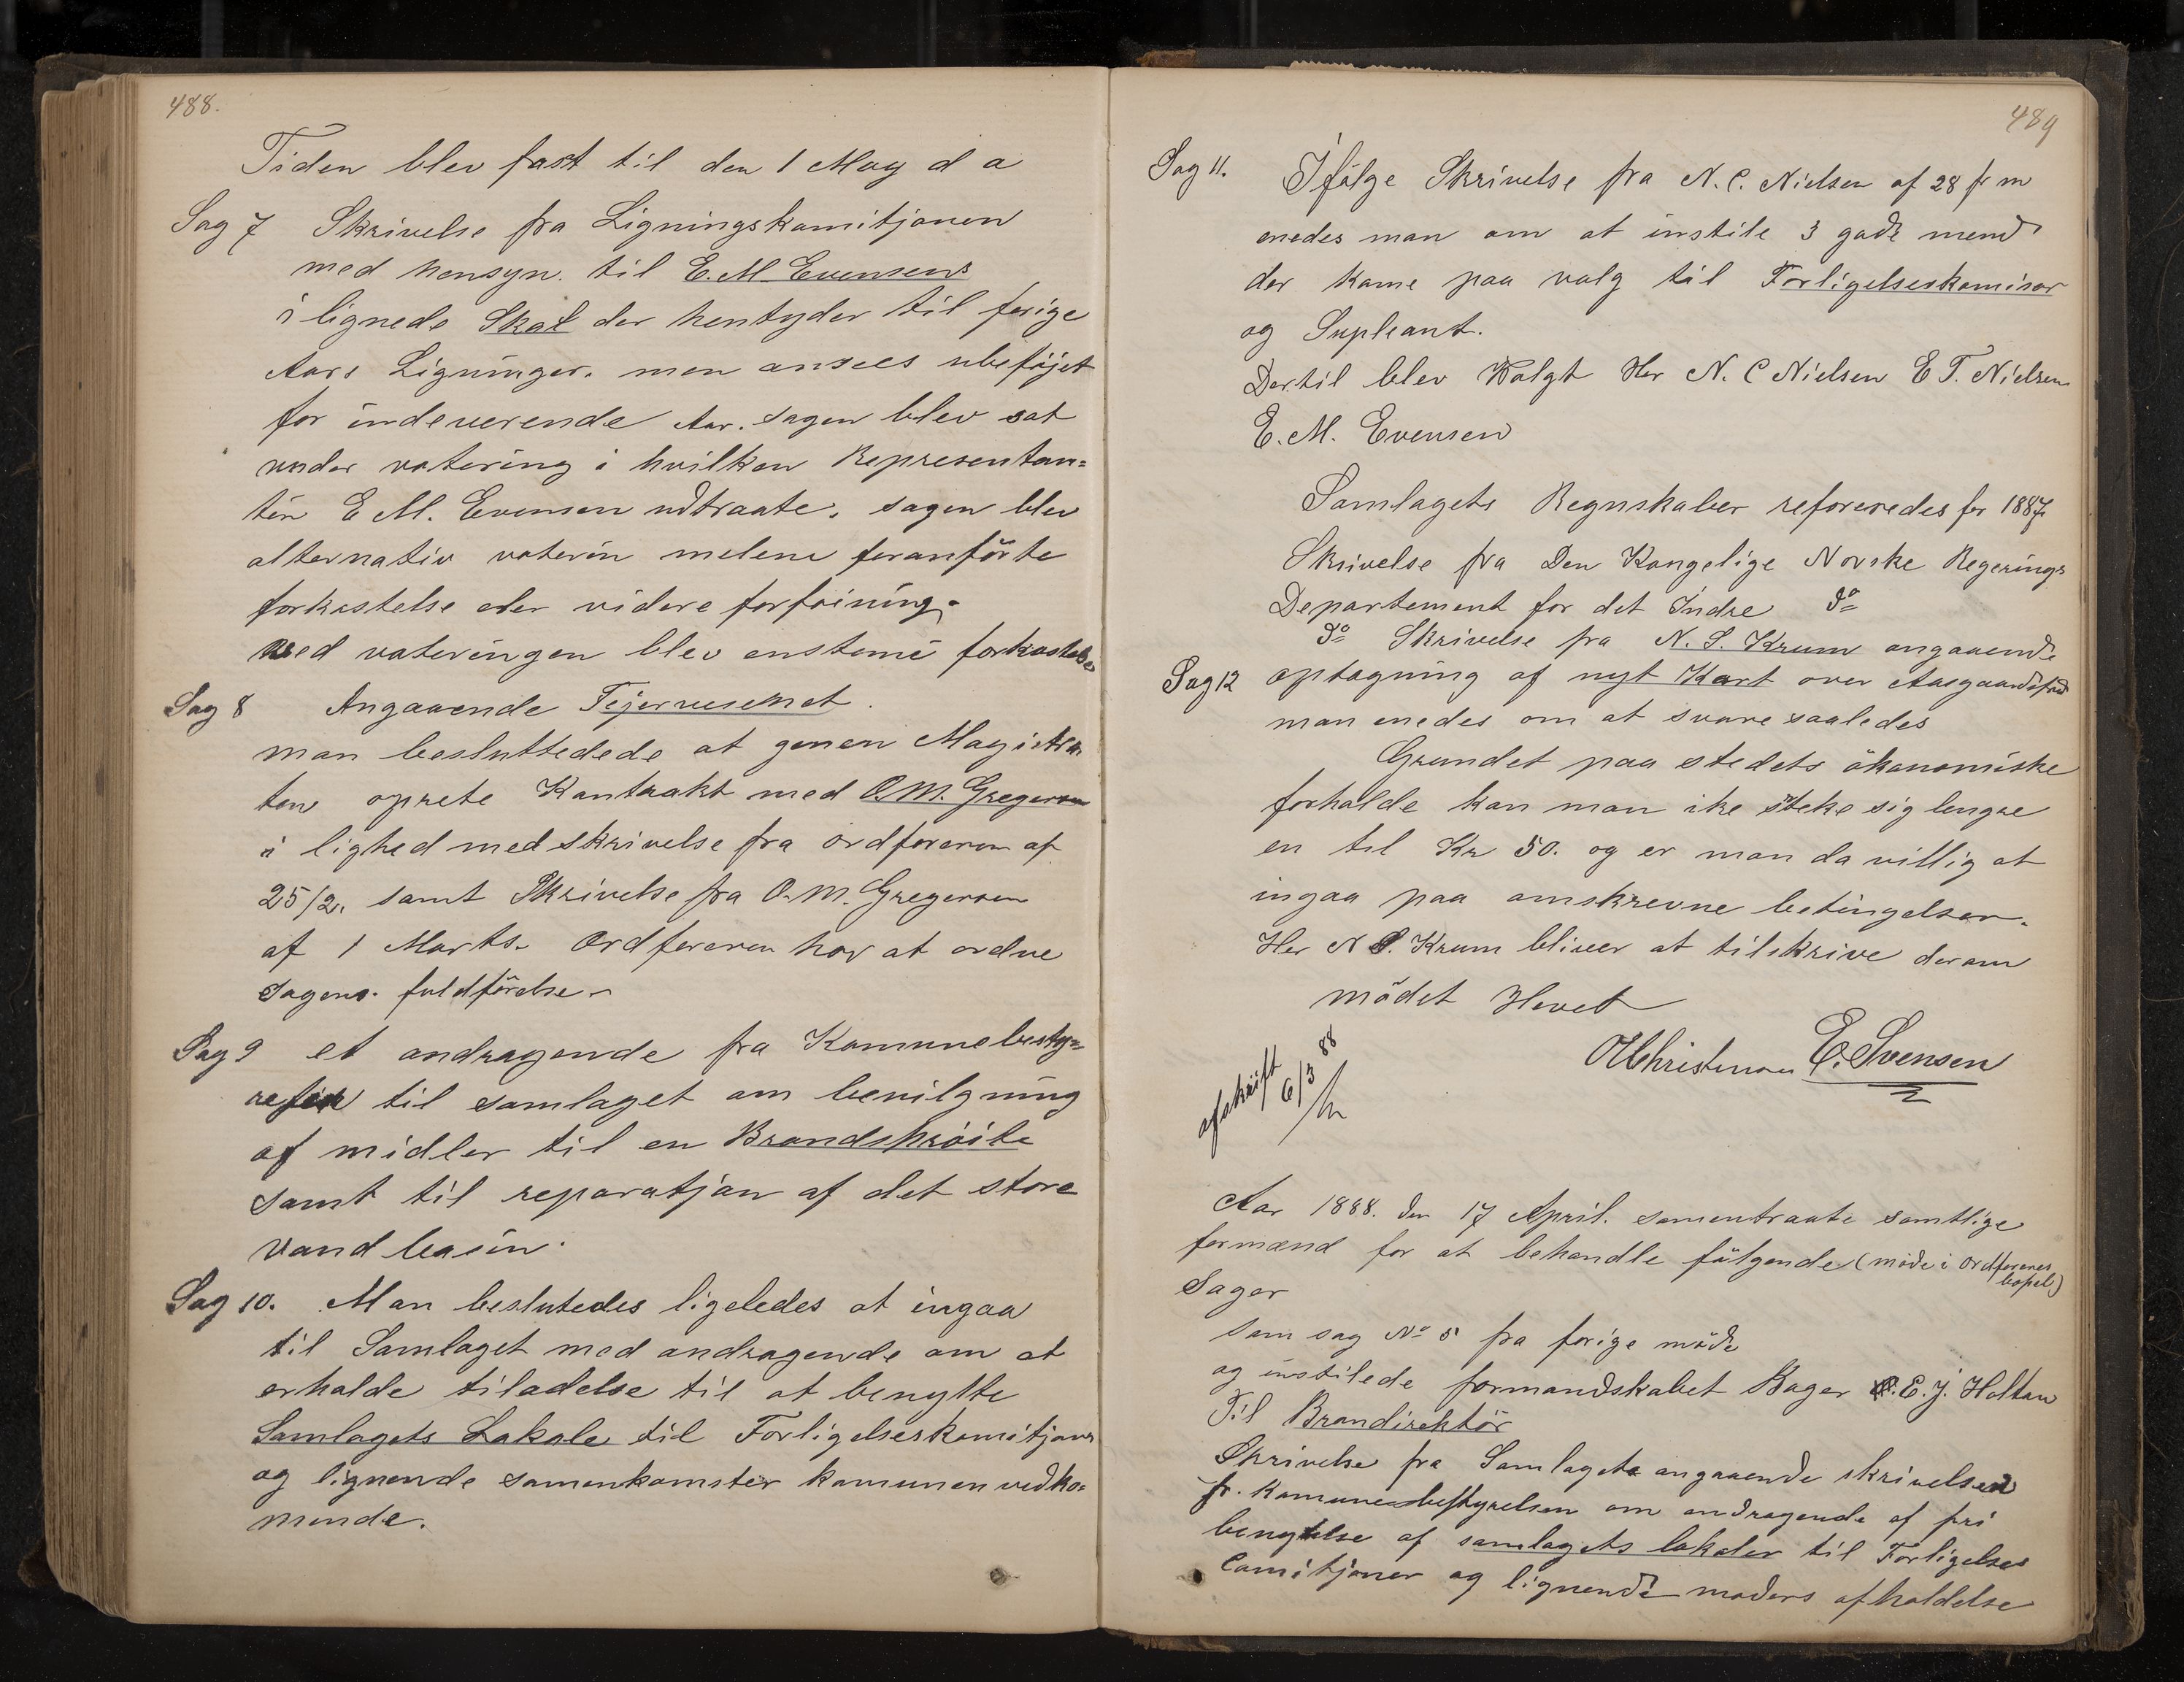 488.
Tiden blev fast til den 1 May d a
Sag 7 Skrivelse fra Ligningskomitjonen
med hensyn til E. M. Evensens
i lignede Skat der hentyder til forige
Aars Ligninger. men ansees ubeføjet
for indeverende Aar. sagen blev sat
under votering i hvilken Representan=
ten E M. Evensen udtraate. sagen blev
alternativ voterin melem foranförte
forkastelse eler videre forföining.
Ved voteringen blev enstemi forkastelse
Sag 8 Angaaende Fejervesenet.
man besluttedede at genem Magistra
ten oprete Kontrakt med O. M. Gregersen
i lighed med skrivelse fra ordforeren af
25/2. samt Skrivelse fra O. M. Gregersen
af 1 Marts. Ordföreren har at ordne
Sagens fuldförelse
Sag 9 et andragende fra Komunebesty=
relsen til samlaget om bevilgning
af midler til en Brandspröite
samt til reparatjon af det store
Vand basin.
Sag 10. Man beslutedes ligeledes at ingaa
til Samlaget med andragende om at
erholde tiladelse til at benytte
Samlagets Lokale til Forligelseskomitjoner
og lignende samenkomster komunen vedko=
mende.
489
Sag 11. Ifölge Skrivelse fra N. C. Nielsen af 28 f m
enedes man om at instile 3 gode mend
der kome paa valg til Forligelseskomisær
og Supleant.
Dertil blev Valgt Her N. C Nielsen E T. Nielsen
E. M. Evensen
Samlagets Regnskaber refereredes for 1887.
Skrivelse fra Den Kongelige Norske Regerings
Departement for det Indre do
do Skrivelse fra N. S. Krum angaaende
Sag 12 optagning af nyt Kart over Aasgaardst
man enedes om at svare saaledes
Grundet paa stedets ökonomiske
forholde kan man ike streke sig lengre
en til Kr 50. og er man da villig at
ingaa paa omskrevne betingelser.
Her N S. Krum bliver at tilskrive derom
mödet Hevet
OChristensen E. Svensen
afskrift
6/3 88
Aar 1888. den 17 April. samentraate samtlige
formænd for at behandle fölgende (möde i Ordförerens
bopel)
Sager
Som sag No 5 fra forige möde
og instilede formandskabet Bager E. J. Holtan
Til Brandirektör
Skrivelse fra Samlaget angaaende skrivelsen
fr. Komunebestyrelsen om andragende af fri
benytelse af samlagets lokaler til Forligelses
Comitjoner og lignende möders afholdelse